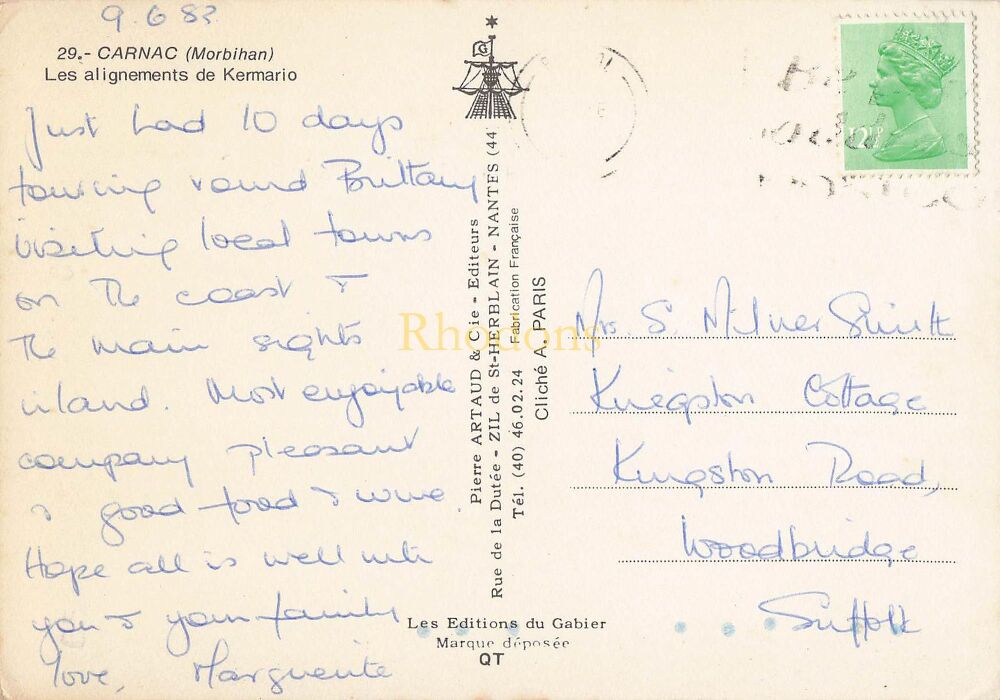 9.6.83
29.- CARNAC (Morbihan)
Les alignements de Kermario
Just had 10 days
touring round Brittany
visiting local towns
on the coast &
the main sights
inland. Most enjoyable
company pleasant
& good food & wine.
Hope all is well with
you & your family
love, Marguerite
Pierre ARTAUD & Cie - Editeurs
Rue de la Dutée - ZIL de St-HERBLAIN - NANTES (44
Tél. (40) 46.02.24 Fabrication Française
Cliché A. PARIS
Les Editions du Gabier
Marque déposée
QT
G
12½P
Mrs. S. Milner Smith
Kingston Cottage
Kingston Road,
Woodbridge
Suffolk
Rhodons